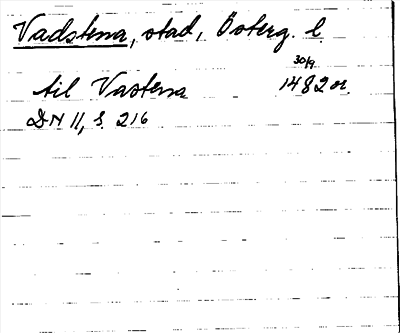 Vadstena, stad, Österg. l.
30/9
til Vastena 1482 or.
DN 11, s. 216